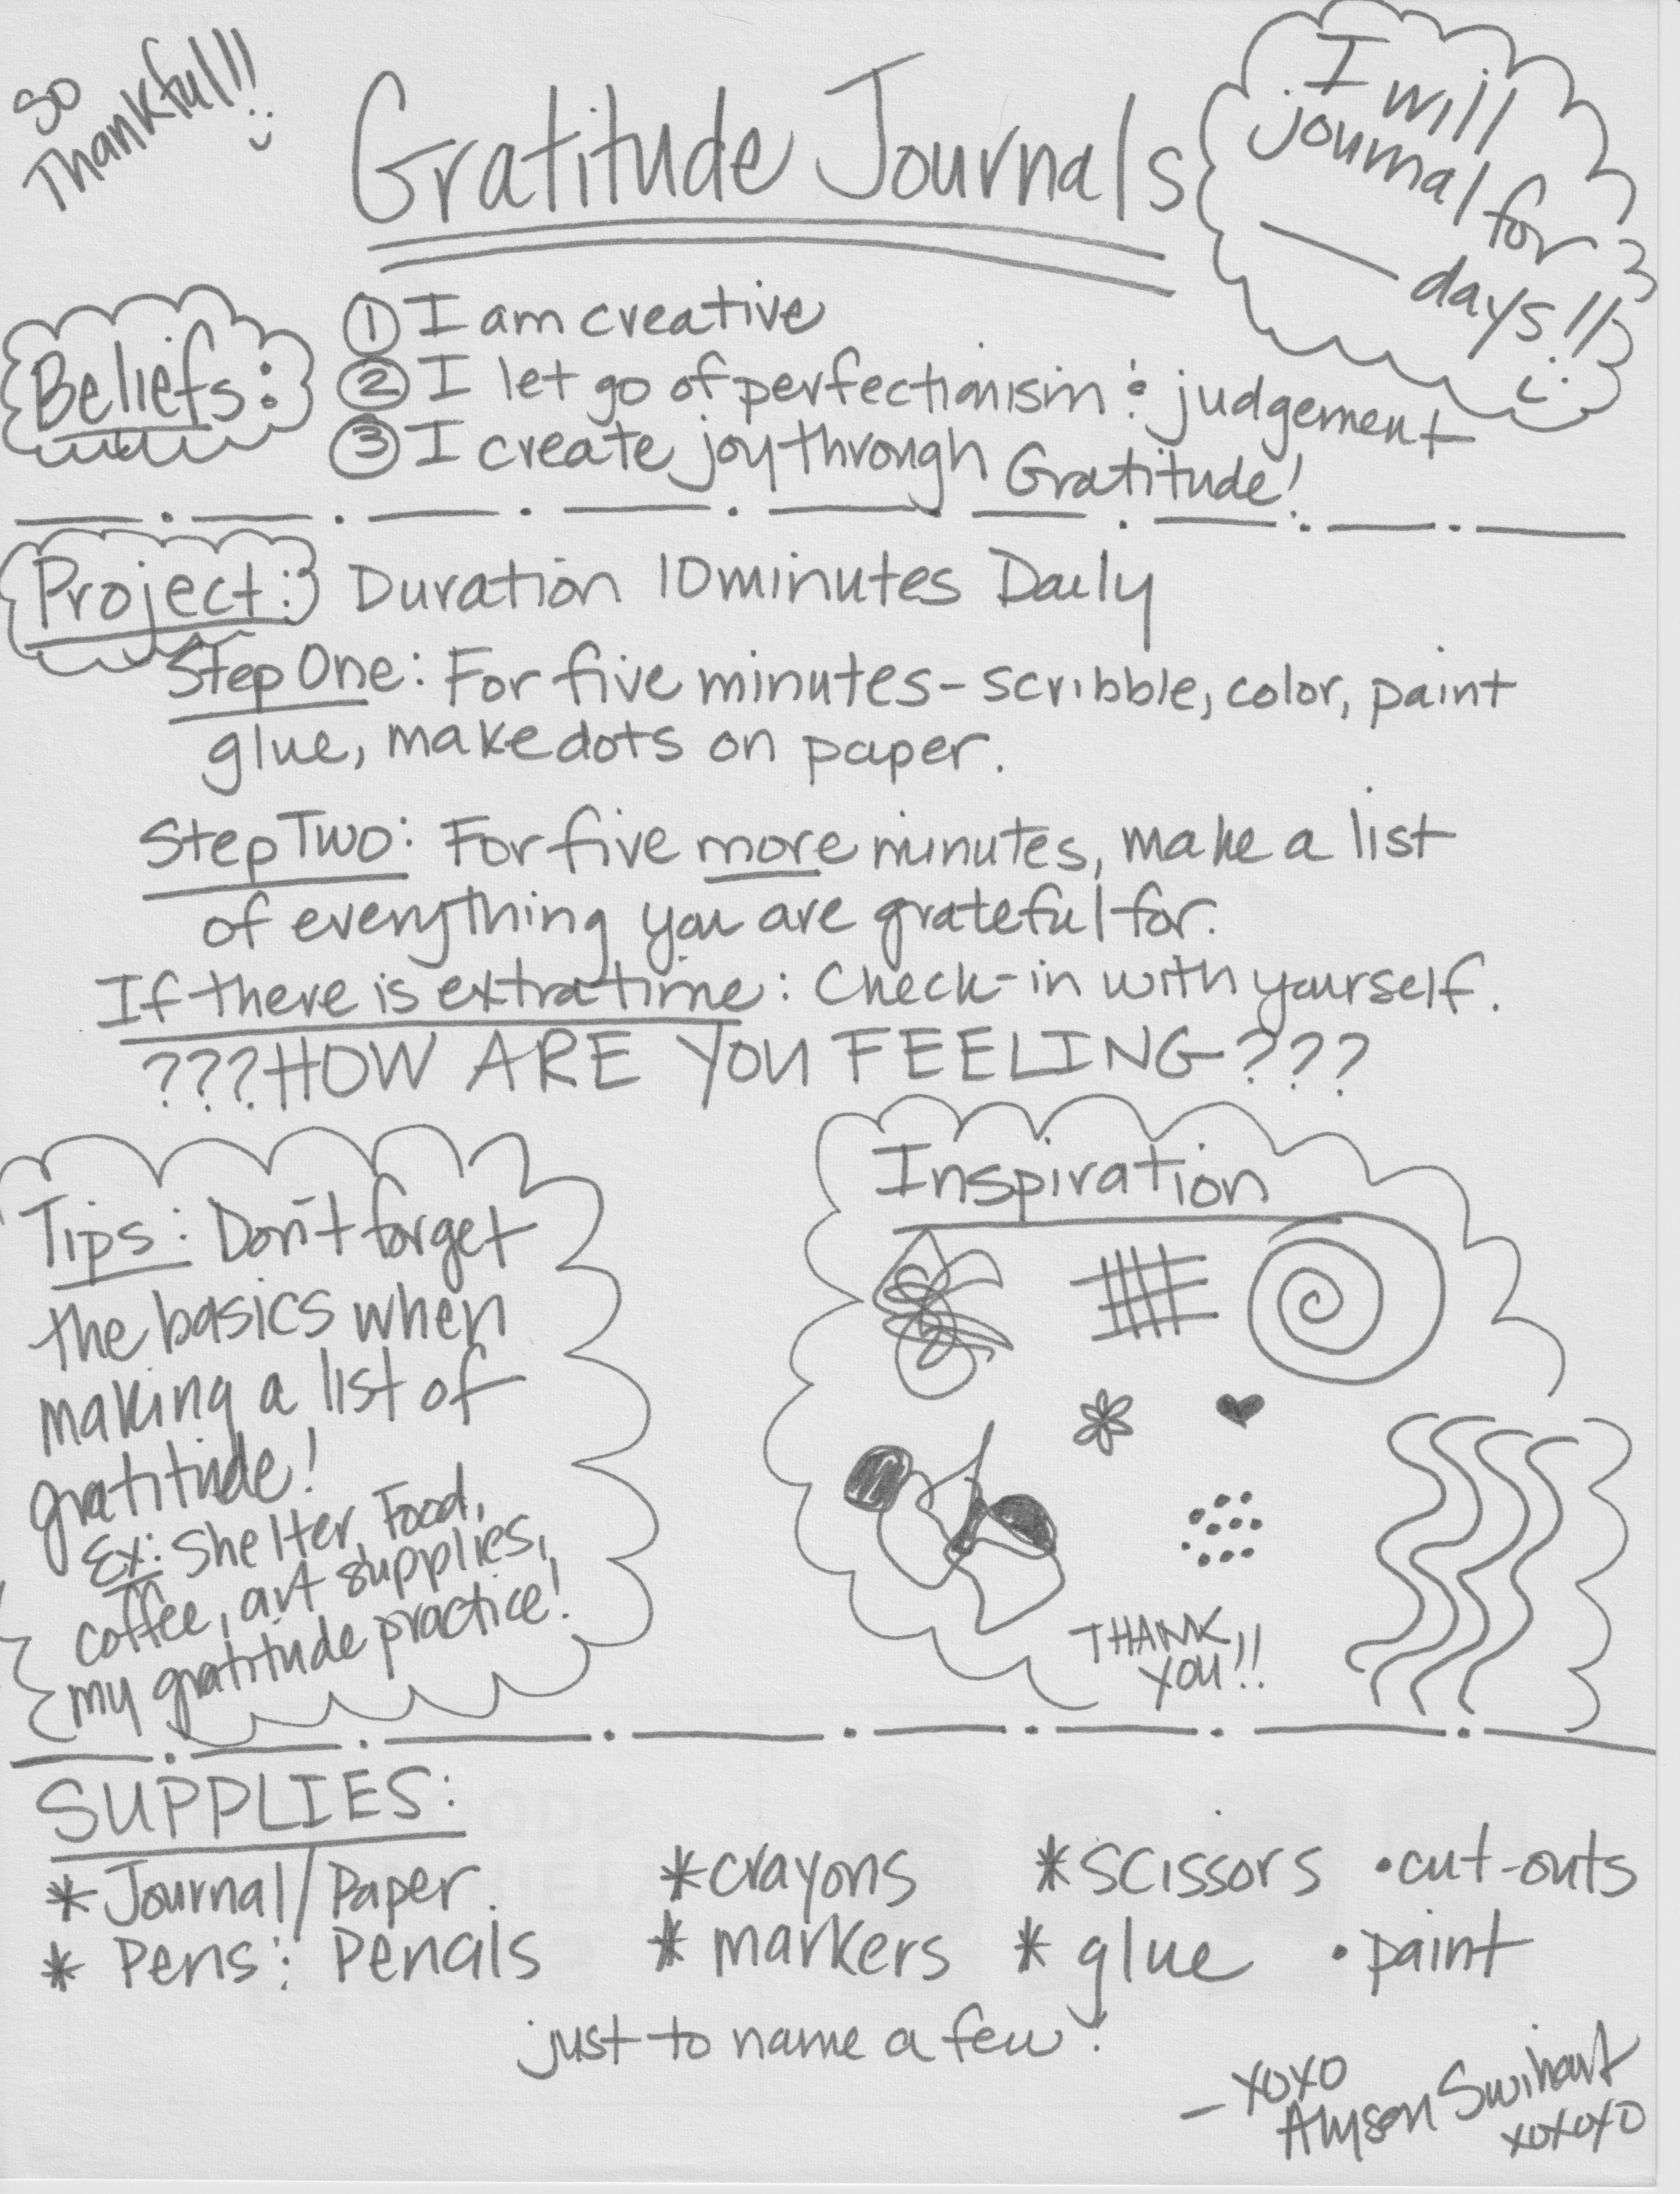 So
Thankful!!
Gratitude Journals
I will
journal for
____ days!!
Beliefs:
① I am creative
② I let go of perfectionism & judgement
③ I create joy through Gratitude!
Project: Duration 10 minutes Daily
Step One: For five minutes - scribble, color, paint
glue, make dots on paper.
Step Two: For five more minutes, make a list
of everything you are grateful for.
If there is extra time: Check-in with yourself.
???HOW ARE YOU FEELING???
Tips: Don't forget
the basics when
making a list of
gratitude!
Ex: Shelter, Food,
coffee, art supplies,
my gratitude practice!
Inspiration
THANK
YOU!!
SUPPLIES:
* Journal/Paper * crayons * scissors • cut-outs
* Pens & Pencils * markers * glue • paint
just to name a few!
- xoxo
Alyson Swihart
xoxoxo